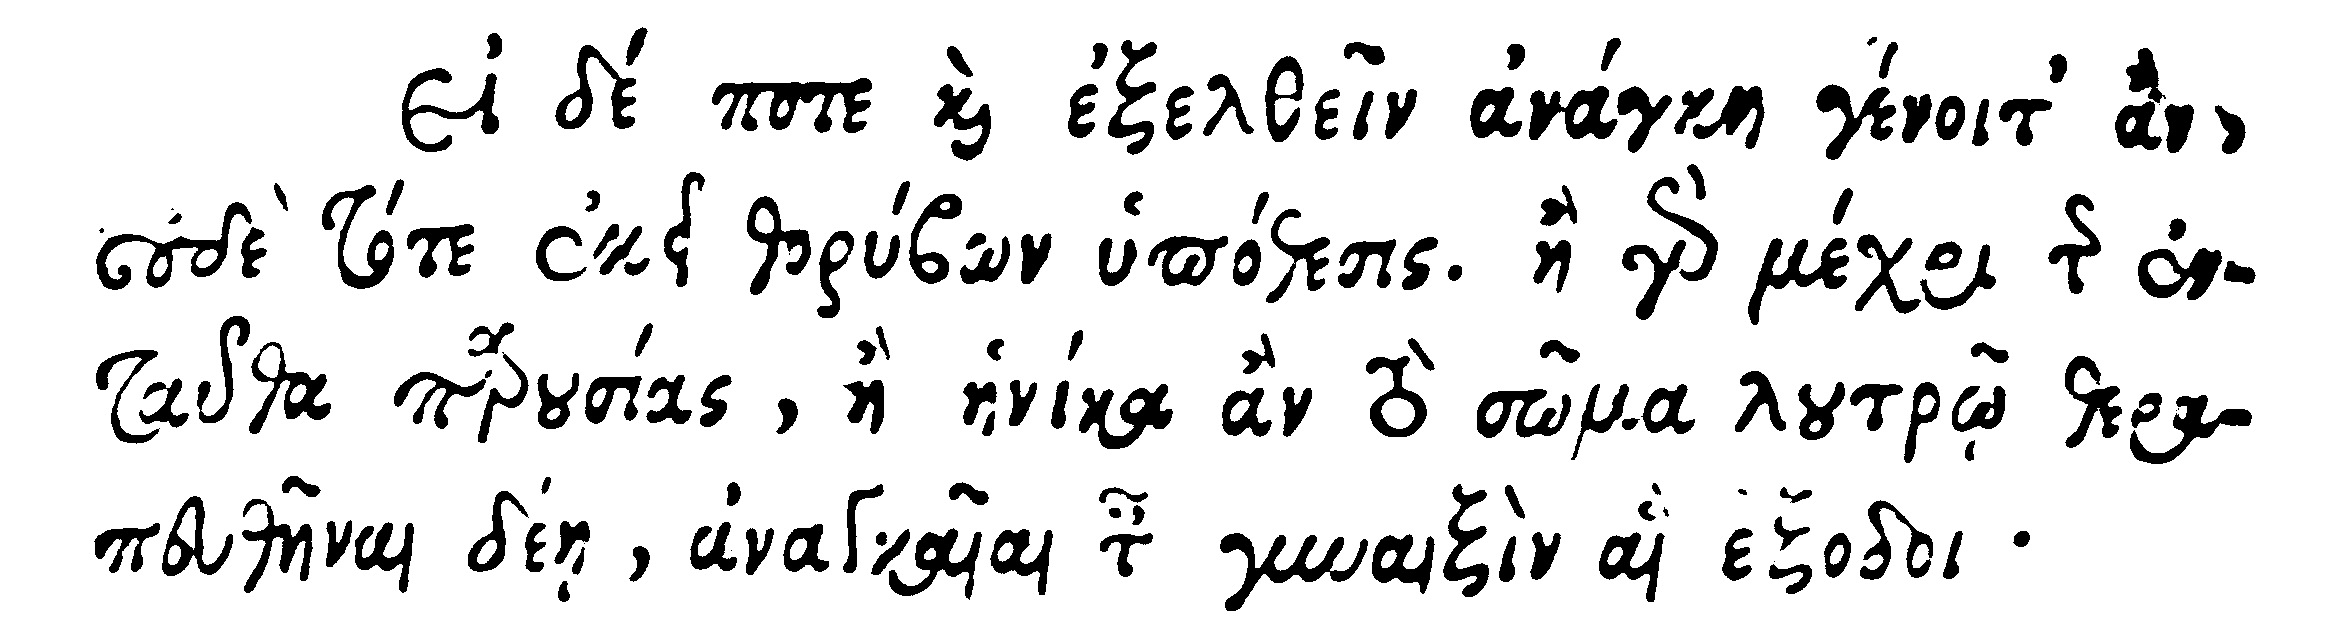 Εἰ δέ ποτε καὶ ἐξελθεῖν ἀνάγκη γένοιτ᾽ ἂν,
οὐδὲ τότε θορύβων ἢ γὰρ μέχρι τῆς ἐν-
ταῦθα παρουσίας, ἢ ἡνίκα ἂν τὸ σῶμα λουτρῷ θερα-
πευθῆναι δέῃ, ἀναγκαῖαι γυναιξὶν αἱ ἔξοδοι.